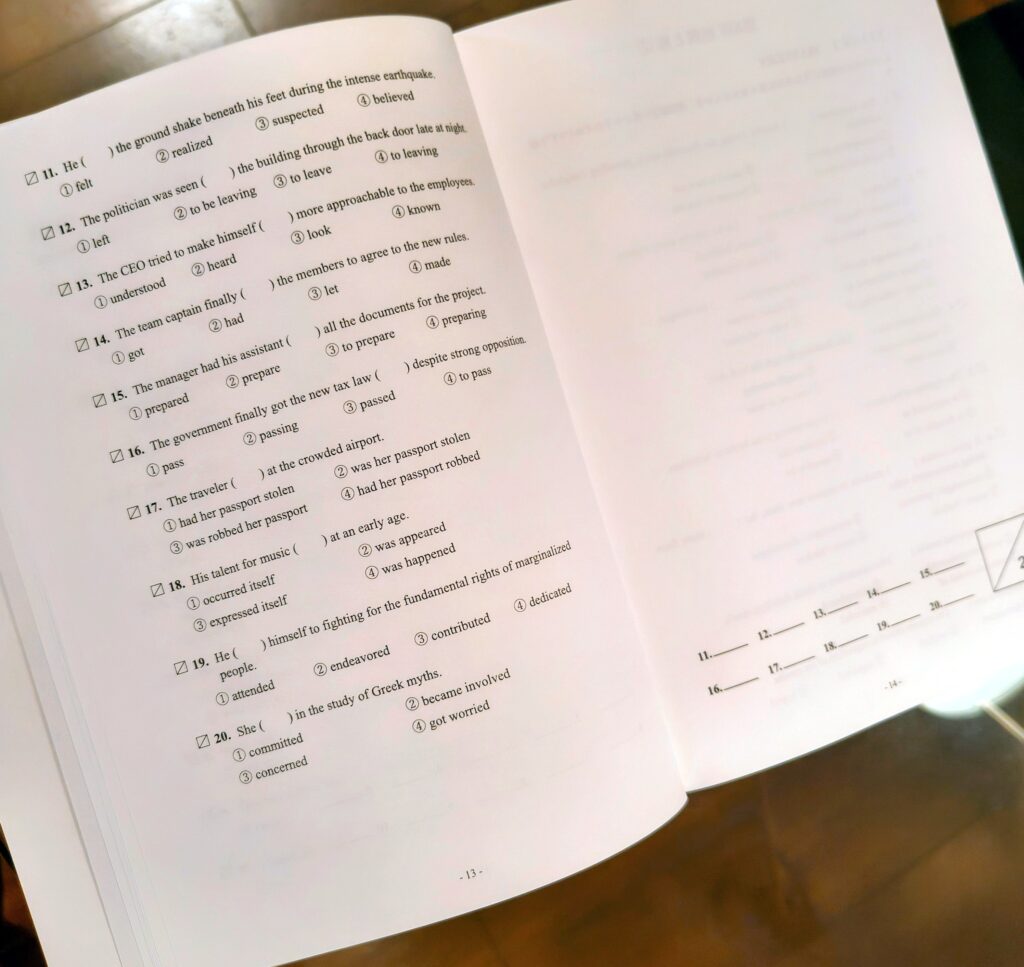 11. He (    ) the ground shake beneath his feet during the intense earthquake.
① felt ② realized ③ suspected ④ believed
12. The politician was seen (    ) the building through the back door late at night.
① left ② to be leaving ③ to leave ④ to leaving
13. The CEO tried to make himself (    ) more approachable to the employees.
① understood ② heard ③ look ④ known
14. The team captain finally (    ) the members to agree to the new rules.
① got ② had ③ let ④ made
15. The manager had his assistant (    ) all the documents for the project.
① prepared ② prepare ③ to prepare ④ preparing
16. The government finally got the new tax law (    ) despite strong opposition.
① pass ② passing ③ passed ④ to pass
17. The traveler (    ) at the crowded airport.
① had her passport stolen ② was her passport stolen
③ was robbed her passport ④ had her passport robbed
18. His talent for music (    ) at an early age.
① occurred itself ② was appeared
③ expressed itself ④ was happened
19. He (    ) himself to fighting for the fundamental rights of marginalized
people.
① attended ② endeavored ③ contributed ④ dedicated
20. She (    ) in the study of Greek myths.
① committed ② became involved
③ concerned ④ got worried
- 13 -
11. 12. 13. 14. 15.
16. 17. 18. 19. 20.
- 14 -